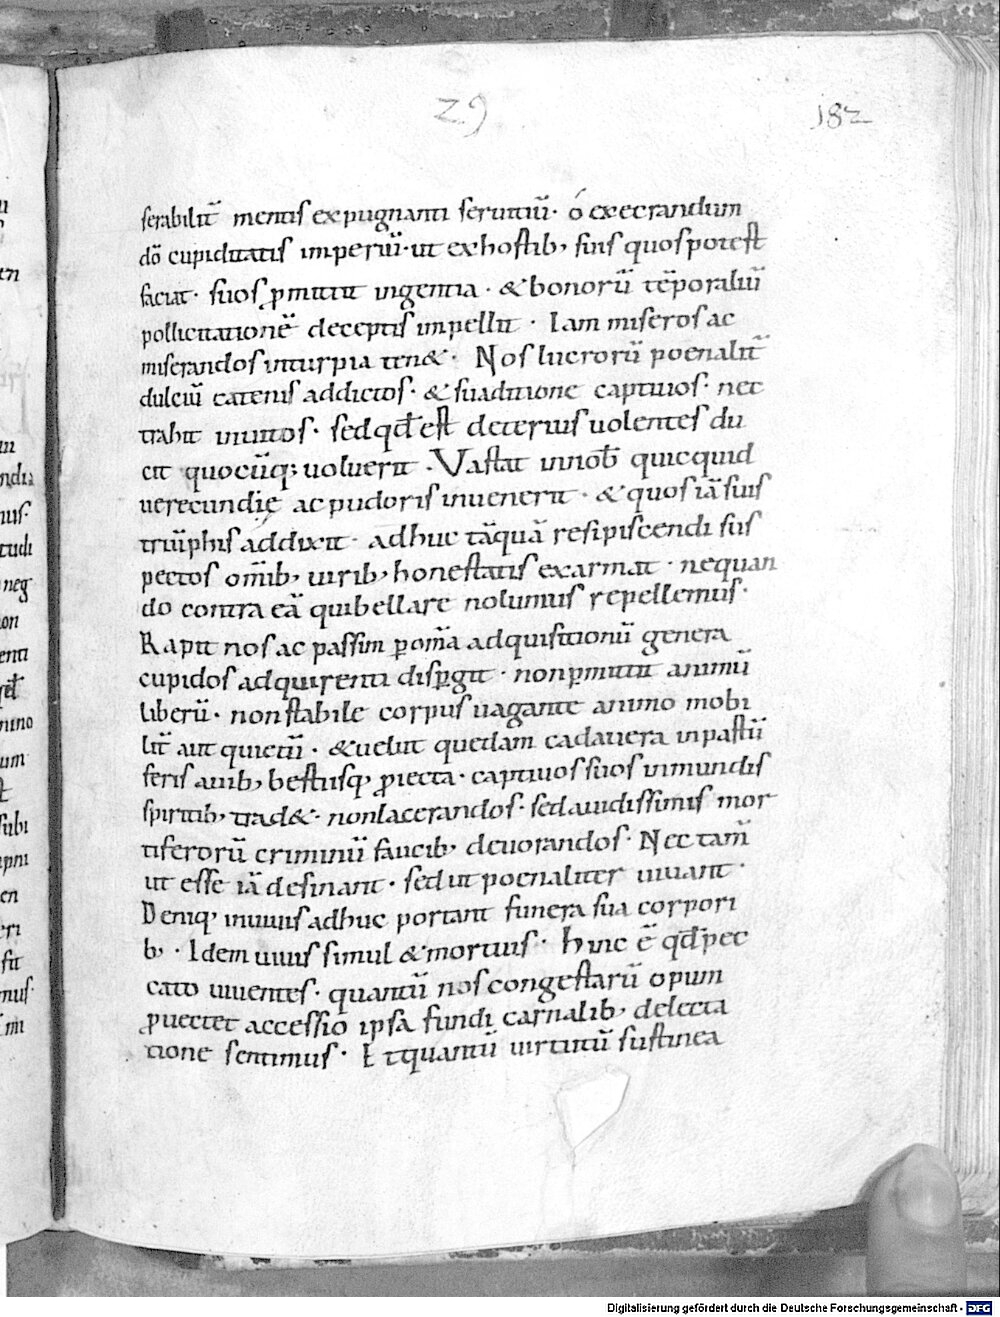 29
182
serabilit̄ mentis expugnanti seruitiū· ó execrandum
dō cupiditatis imperiū· ut exhostib; suis quospotest
faciat· suos ꝓmittit ingentia· & bonorū tēporaliū
pollicitationē deceptis impellit· Iam miseros ac
miserandos inturpia ten&· Nos lucrorū poenalit̄
dulciū catenis addictos· & suaditione captiuos· nec
trahit inuitos· sed qđ est deterius uolentes du
cit quocūq; uoluerit· Vastat innob̄ quicquid
uerecundię ac pudoris inuenerit· & quos iā suis
triūphis addixit· adhuc tāquā resipiscendi sus
pectos om̄ib; uirib; honestatis exarmat· nequan
do contra eā quibellare nolumus repellemus·
Rapit nos ac passim ꝑ om̄a adquisitionū genera
cupidos adquirenti disꝑgit· non ꝑmittit animū
liberū· non stabile corpus uagante animo mobi
lit̄ aut quietū· & uelut quedam cadauera inpastū
feris auib; bestiisq; ꝓiecta· captiuos suos inmundis
spiritib; trad&· nonlacerandos· sed auidissimis mor
tiferorū criminū faucib; deuorandos· Nec tam̄
ut esse iā desinant· sed ut poenaliter uiuant·
Deniq; inuiuis adhuc portant funera sua corpori
b;· Idem uiuus simul & mortuus· hinc ē qđ pec
cato uiuentes· quantū nos congestarū opum
ꝓuectet accessio ipsa fundi carnalib; delecta
tione sentimus· Et quantū uirtutū sustinea
Digitalisierung gefördert durch die Deutsche Forschungsgemeinschaft - DFG